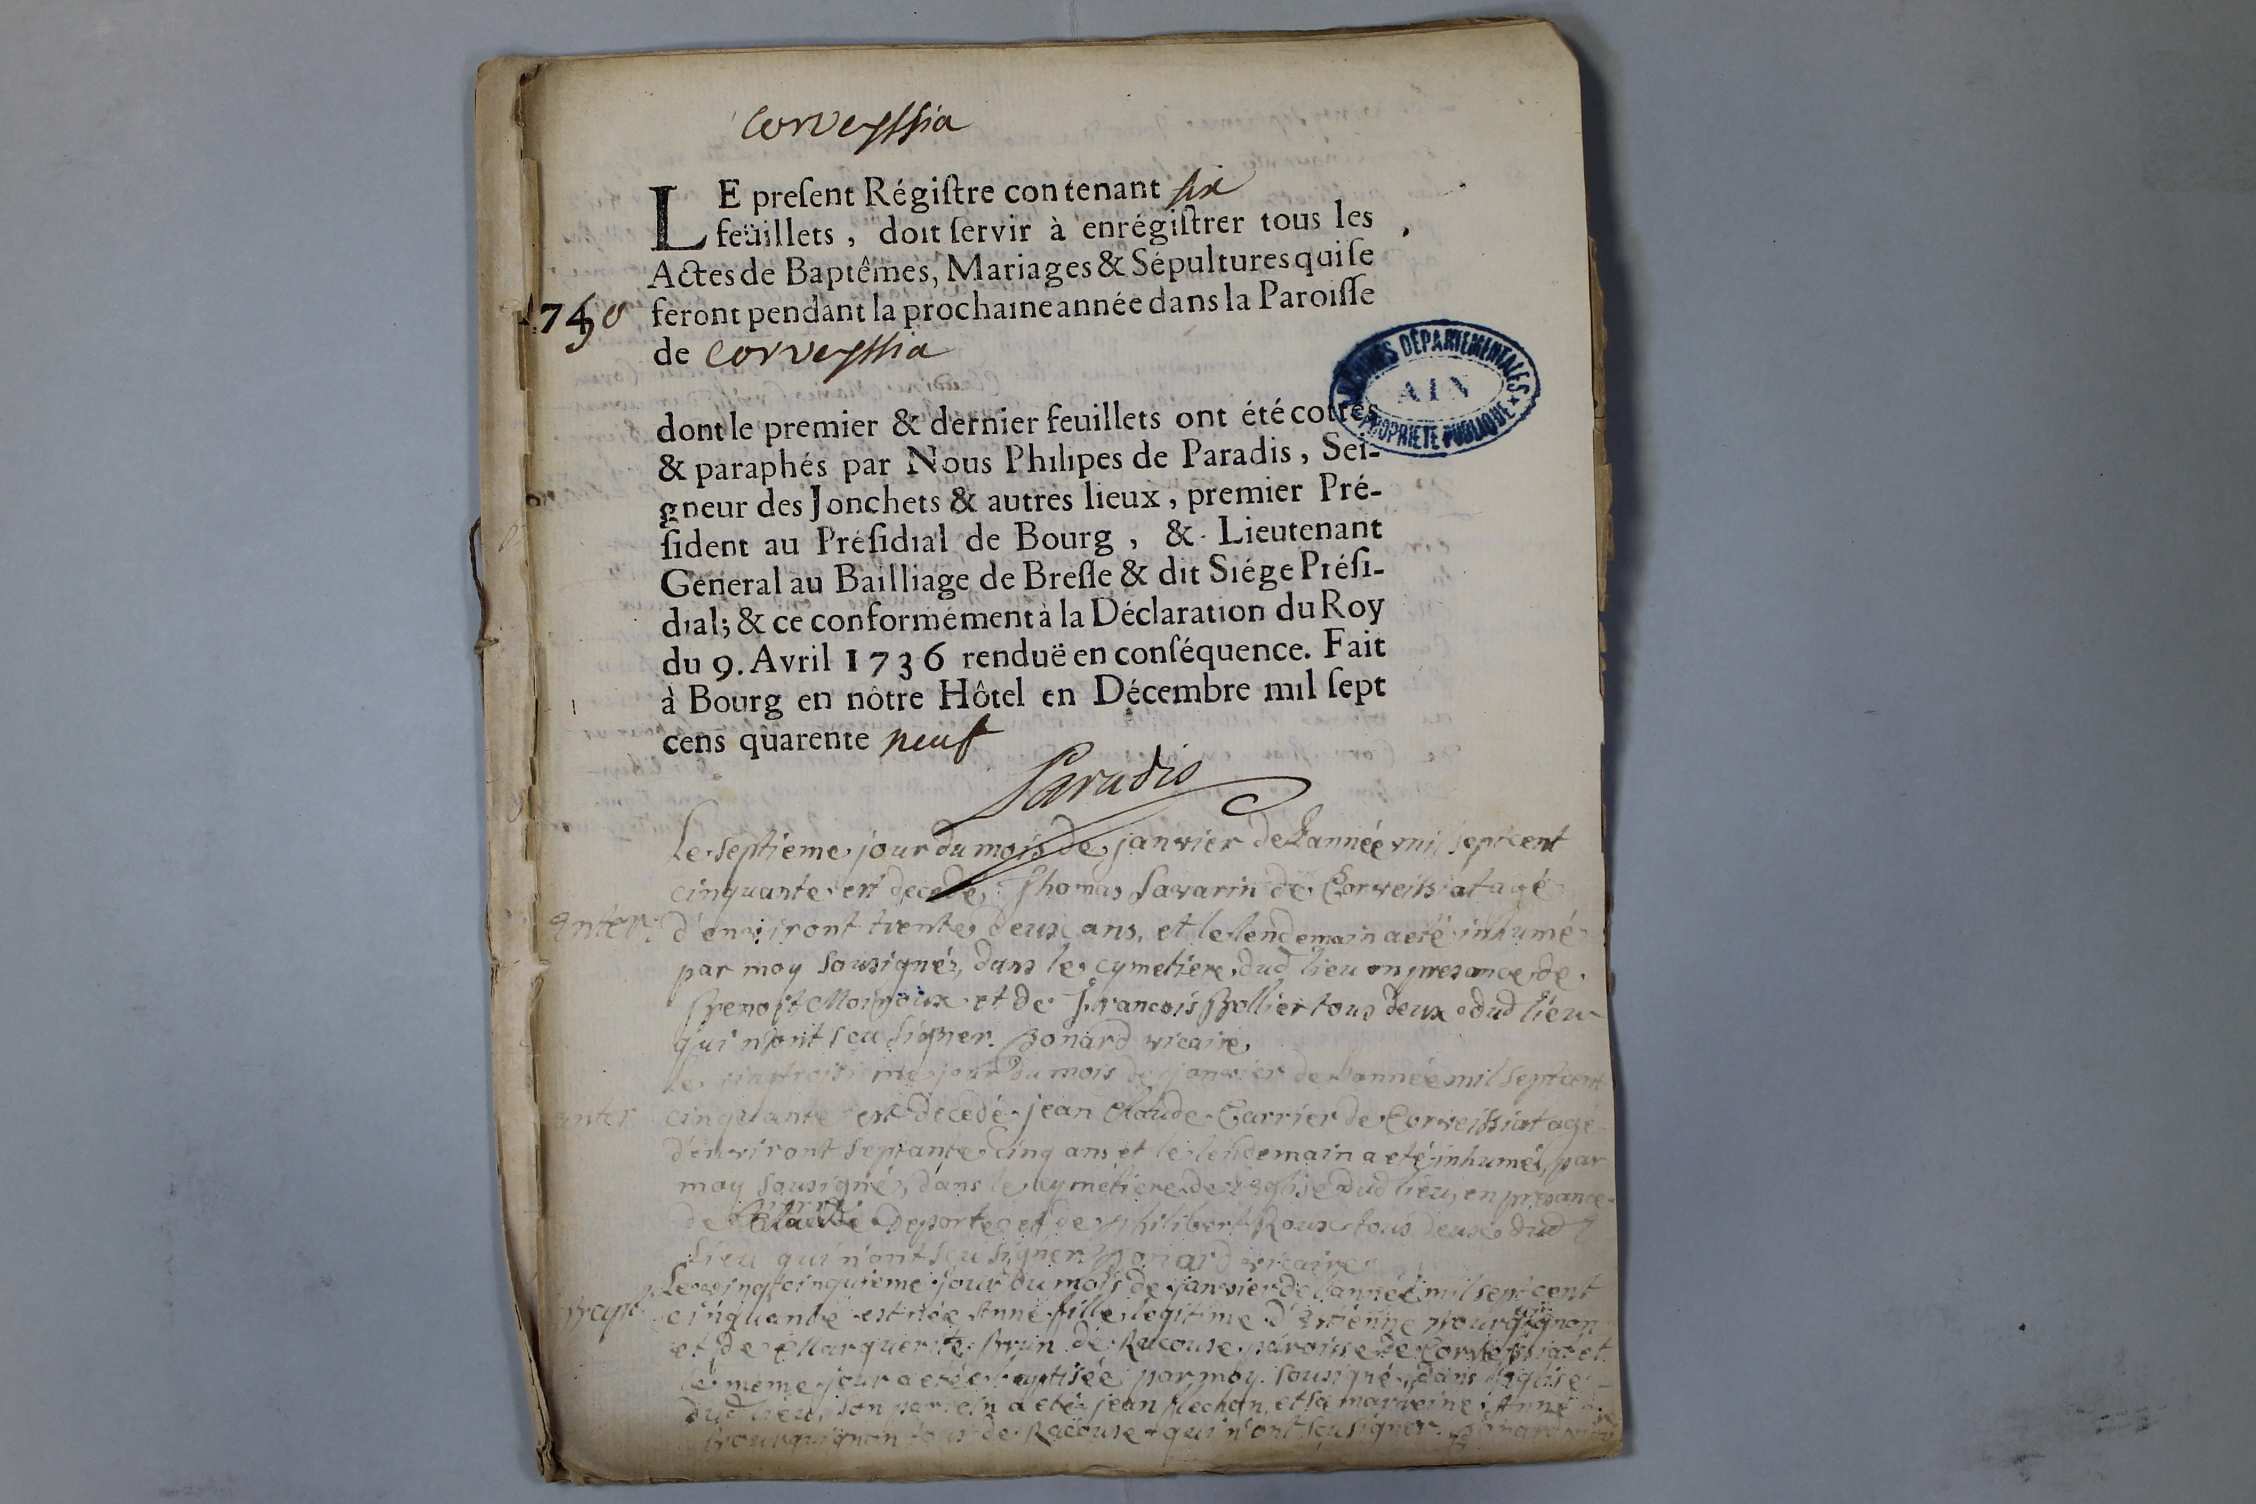 Corveyssia
LE present Régistre contenant six
feüillets, doit servir à enrégistrer tous les
Actes de Baptêmes, Mariages & Sépultures qui se
feront pendant la prochaine année dans la Paroisse
1750
de Corveyssia
ARCHIVES DÉPARTEMENTALES
AIN
PROPRIÉTÉ PUBLIQUE
dont le premier & dernier feuillets ont été cottés
& paraphés par Nous Philipes de Paradis, Sei-
gneur des Jonchets & autres lieux, premier Pré-
sident au Présidial de Bourg, & Lieutenant
Géneral au Bailliage de Bresse & dit Siége Prési-
dial; & ce conformément à la Déclaration du Roy
du 9. Avril 1736 renduë en conséquence. Fait
à Bourg en nôtre Hôtel en Décembre mil sept
cens quarente neuf
Paradis
Le septieme jour du mois de janvier de L'année mil sept cent
cinquante est decedé Thomas Savarin de Corveissiat agé
enter.
d'environt trente deux ans, et le lendemain a eté inhumé
par moy sousigné, dans le cymetiere dud lieu en presance de
Benoist Moiroux et de François Bollier tous deux dud lieu
qui n'ont sceu signer. Bonard vicaire
Le vingtroisieme jour du mois de janvier de L'année mil sept cent
enter
cinquante est decedé jean Claude Carrier de Corveissiat agé
d'environt septante cinq ans et le lendemain a eté inhumé, par
moy sousigné, dans le cymetiere de l'eglise dud lieu, en presance
de Deporte et de philibert Roux tous deux dud
lieu qui n'ont sceu signer. Bonard vicaire
Le vingtcinquieme jour du mois de janvier de l'année mil sept cent
bapt
cinquante est née Anne fille legitime d'Estienne Bourguignon
et de Marguerite Brun de Racouse paroisse de Corveissiat et
le meme jour a eté baptisée par moy sousigné, dans l'eglise
dud lieu, son parrein a eté jean flechon, et sa marreine Anne
Bourguignon tous de Racouse qui n'ont sceu signer. Bonard